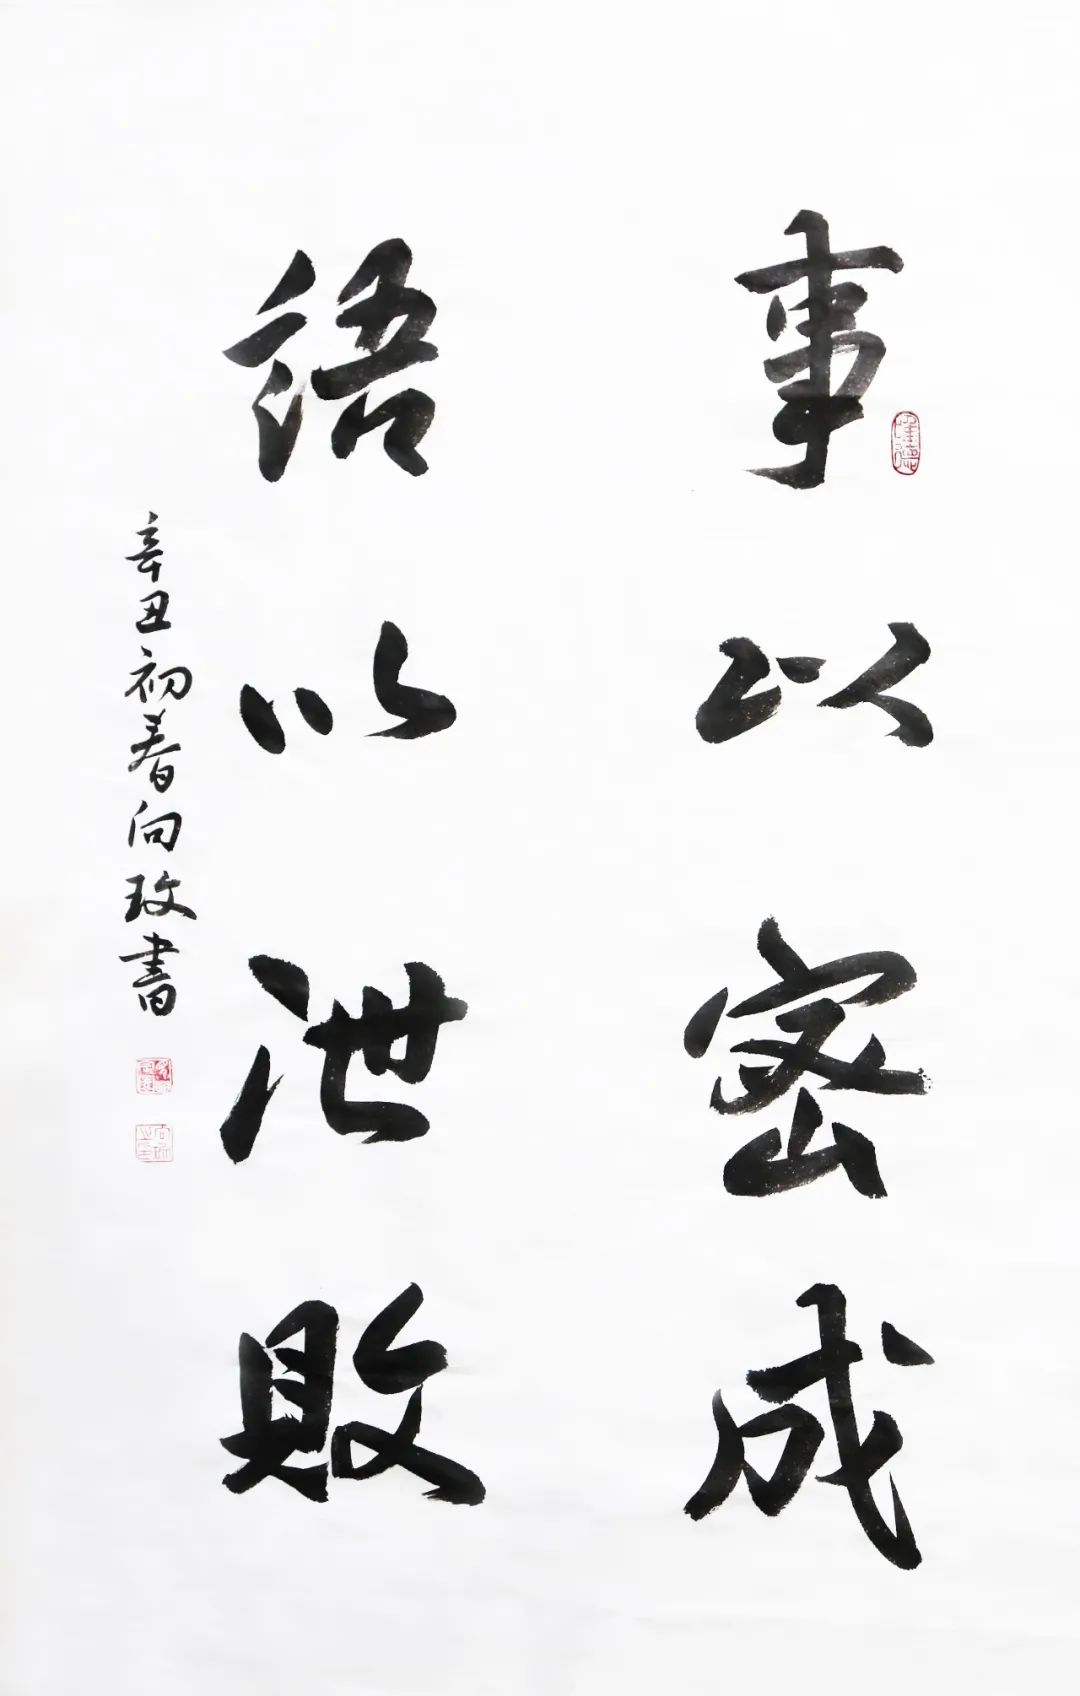 事以密成
語以泄敗
辛丑初春向玫書